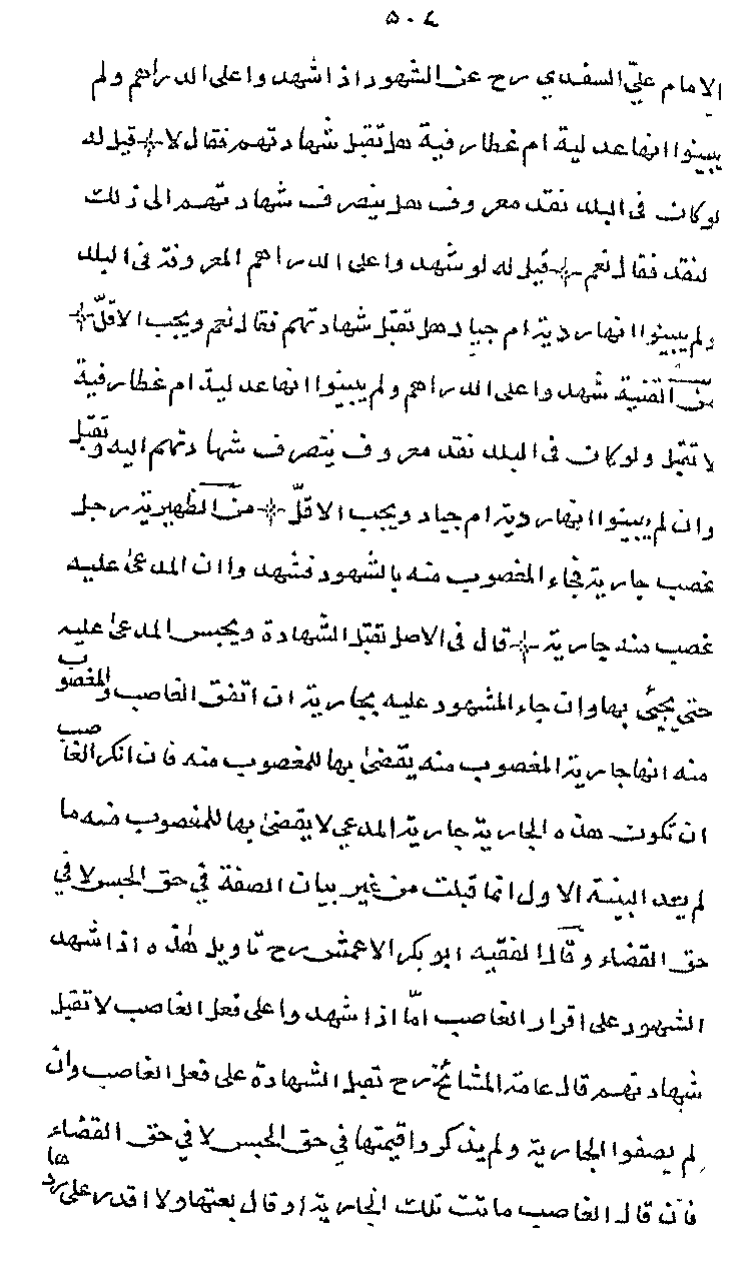 ٥٠٤
الامام عليّ السغدي رح عن الشهود اذا شهدوا على الدراهم ولم
يبينوا انها عدلية ام غطارفية هل تقبل شهادتهم فقال لا قيل له
لو كان في البلد نقد معروف هل ينصرف شهادتهم الى ذلك
لنقد فقال نعم قيل له لو شهدوا على الدراهم المعروفة في البلد
ولم يبينوا انها ردية ام جياد هل تقبل شهادتهم فقال نعم ويجب الاقلّ
من القنية شهدوا على الدراهم ولم يبينوا انها عدلية ام غطارفية
لا تقبل ولو كان في البلد نقد معروف يتصرف شهادتهم اليه وتقبل
وان لم يبينوا انها ردية ام جياد ويجب الاقلّ من الظهيرية رجل
غصب جارية فجاء المغصوب منه بالشهود فشهدوا ان المدعىٰ عليه
غصب منه جارية قال في الاصل تقبل الشهادة ويحبس المدعىٰ عليه
حتى يجئ بها وان جاء المشهود عليه بجارية ان اتفق الغاصب والمغصوب
منه انها جارية المغصوب منه يقضىٰ بها للمغصوب منه فان انكر الغاصب
ان تكون هذه الجارية جارية المدعي لا يقضىٰ بها للمغصوب منه ما
لم يعد البينة الاول انما قبلت من غير بيان الصفة في حق الحبس لا في
حق القضاء وقال الفقيه ابو بكر الاعمش رح تاويل هٰذه اذا شهد
الشهود على اقرار الغاصب امّا اذا شهدوا على فعل الغاصب لا تقبل
شهادتهم قال عامة المشائخ رح تقبل الشهادة على فعل الغاصب وان
لم يصفوا الجارية ولم يذكروا قيمتها في حق الحبس لا في حق القضاء
فان قال الغاصب ماتت تلك الجارية او قال بعتها ولا اقدر على ردها